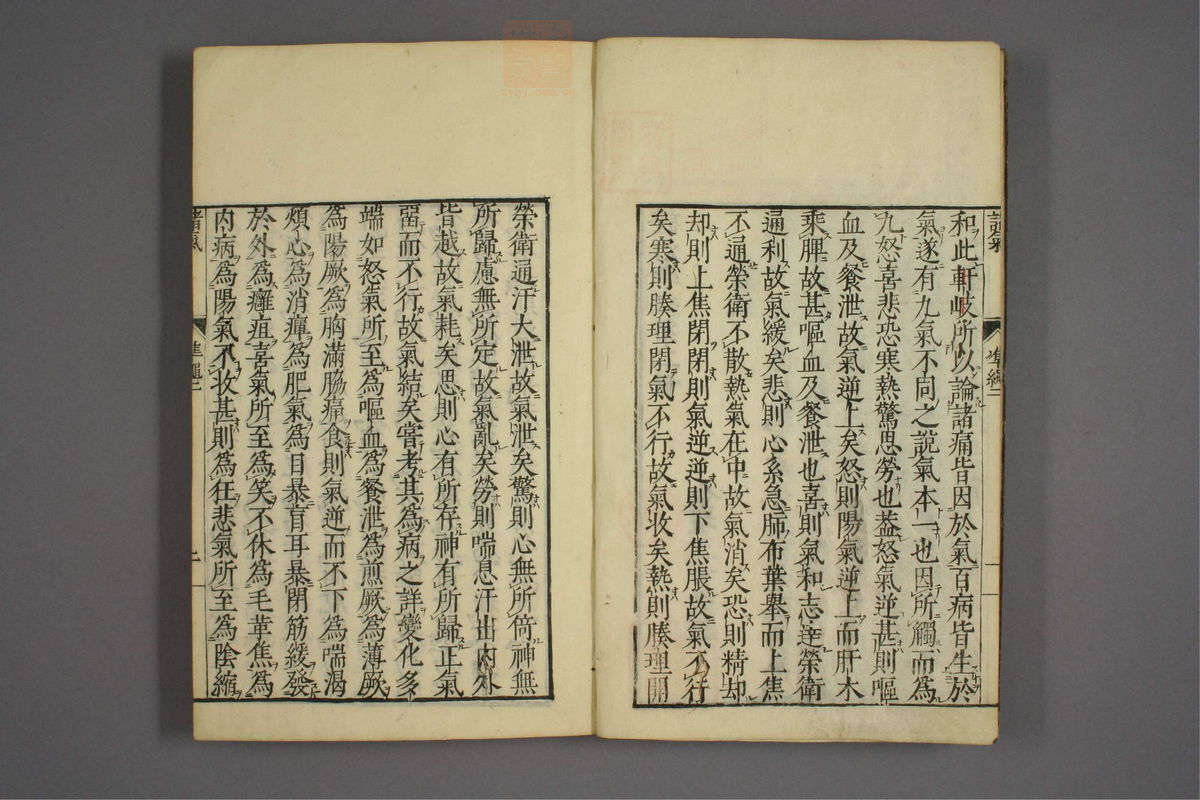 諸氣 準繩二 一
和此軒岐所以論諸痛皆因於氣百病皆生於
氣遂有九氣不同之說氣本一也因所觸而為
九怒喜悲恐寒熱驚思勞也葢怒氣逆甚則嘔
血及餐泄故氣逆上矣怒則陽氣逆上而肝木
乘脾故甚嘔血及餐泄也喜則氣和志達榮衛
通利故氣緩矣悲則心系急肺布葉舉而上焦
不通榮衛不散熱氣在中故氣消矣恐則精却
却則上焦閉閉則氣逆逆則下焦脹故氣不行
矣寒則腠理閉氣不行故氣收矣熱則腠理開
榮衛通汗大泄故氣泄矣驚則心無所倚神無
所歸慮無所定故氣亂矣勞則喘息汗出內外
皆越故氣耗矣思則心有所存神有所歸正氣
畱而不行故氣結矣嘗考其為病之詳變化多
端如怒氣所至為嘔血為餐泄為煎厥為薄厥
為陽厥為胸滿脇痛食則氣逆而不下為喘渴
煩心為消癉為肥氣為目暴盲耳暴閉筋緩發
於外為癰疽喜氣所至為笑不休為毛革焦為
內病為陽氣不收甚則為狂悲氣所至為陰縮
諸氣 準繩二